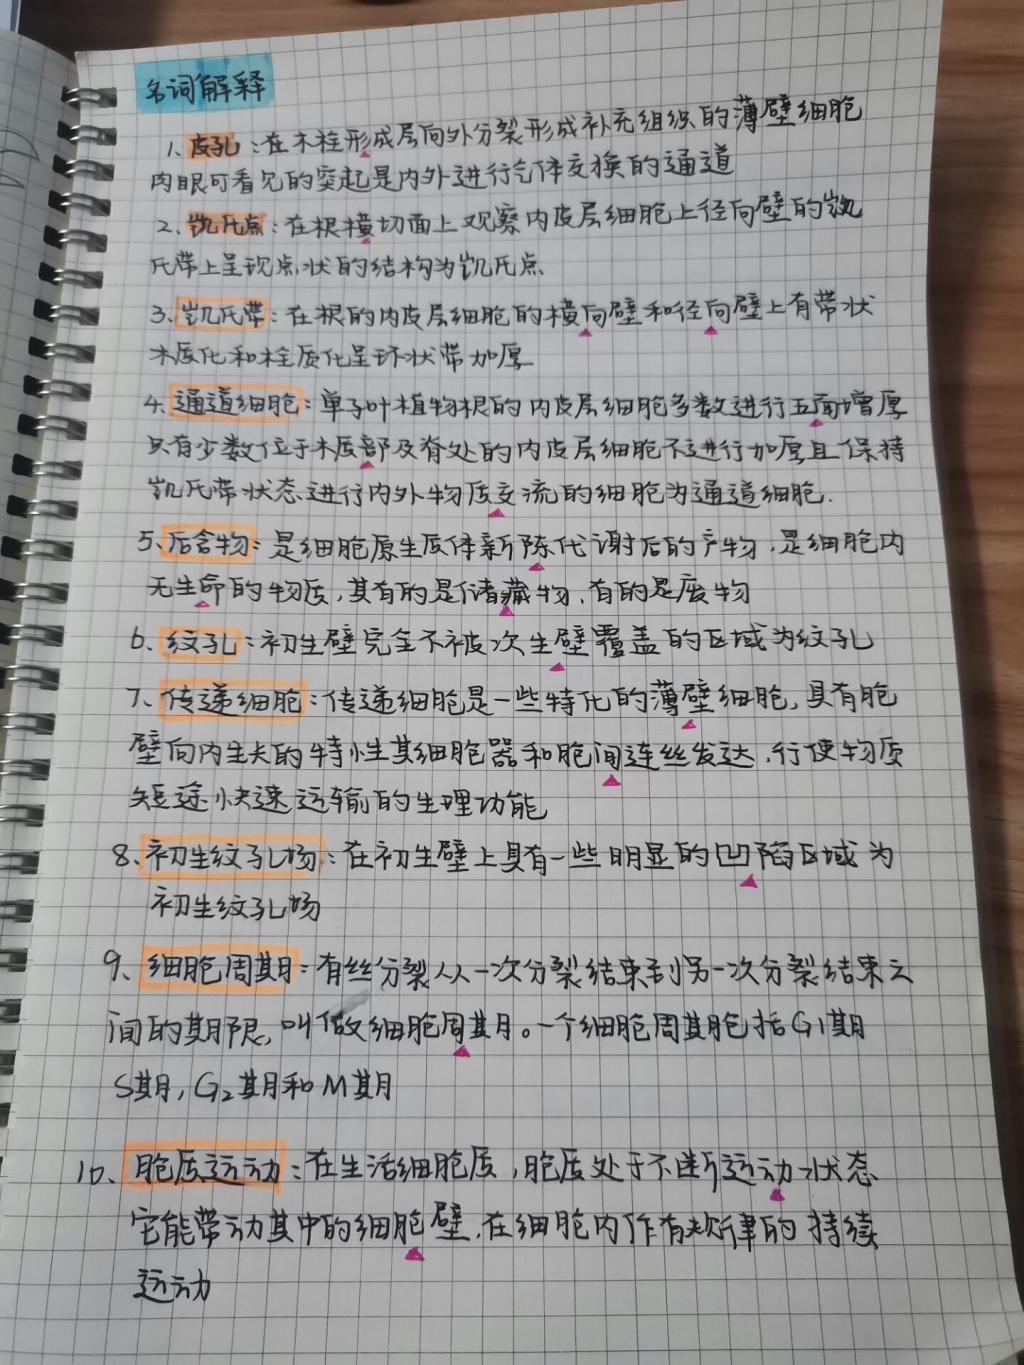 名词解释
1、皮孔：在木栓形成层向外分裂形成补充组织的薄壁细胞
肉眼可看见的突起是内外进行气体交换的通道
2、凯氏点：在根横切面上观察内皮层细胞上径向壁的凯
氏带上呈现点状的结构为凯氏点
3、凯氏带：在根的内皮层细胞的横向壁和径向壁上有带状
木质化和栓质化呈环状带加厚
4、通道细胞：单子叶植物根的内皮层细胞多数进行五面增厚
只有少数位于木质部及脊处的内皮层细胞不进行加厚且保持
凯氏带状态进行内外物质交流的细胞为通道细胞.
5、后含物：是细胞原生质体新陈代谢后的产物，是细胞内
无生命的物质，其有的是储藏物，有的是废物
6、纹孔：初生壁完全不被次生壁覆盖的区域为纹孔
7、传递细胞：传递细胞是一些特化的薄壁细胞，具有胞
壁向内生长的特性其细胞器和胞间连丝发达，行使物质
短途快速运输的生理功能
8、初生纹孔场：在初生壁上具有一些明显的凹陷区域为
初生纹孔场
9、细胞周期：有丝分裂从一次分裂结束到另一次分裂结束之
间的期限，叫做细胞周期。一个细胞周期包括G1期
S期，G2期和M期
10、胞质运动：在生活细胞质，胞质处于不断运动状态
它能带动其中的细胞壁，在细胞内作有规律的持续
运动